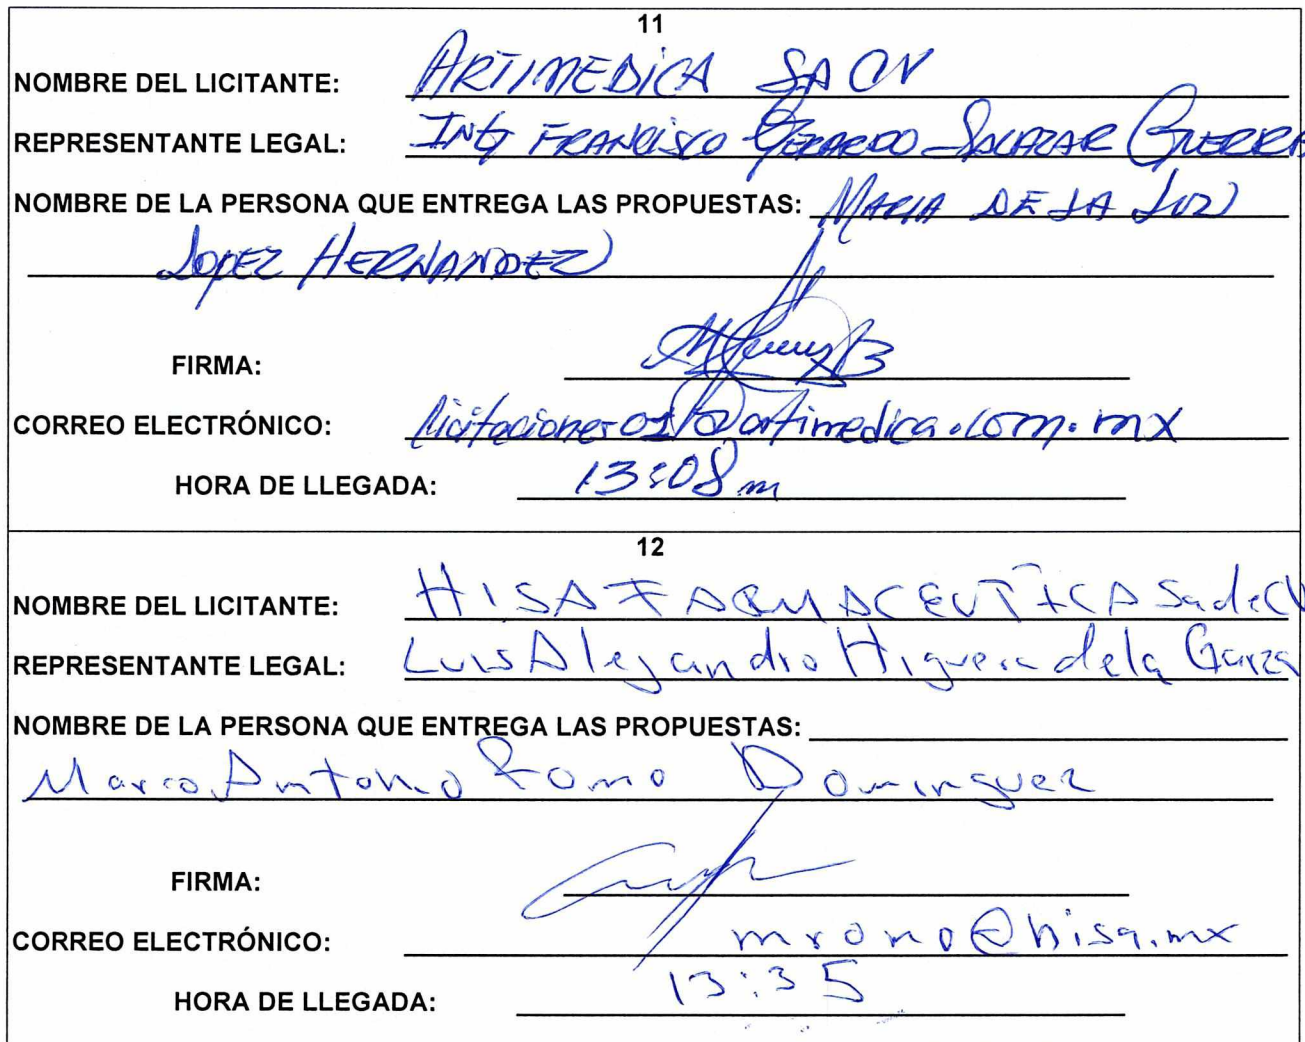 11
NOMBRE DEL LICITANTE: ARTIMEDICA SA CV
REPRESENTANTE LEGAL: ING FRANCISCO GERARDO SALAZAR GUERRA
NOMBRE DE LA PERSONA QUE ENTREGA LAS PROPUESTAS: MARIA DE LA LUZ
LOPEZ HERNANDEZ
FIRMA:
CORREO ELECTRÓNICO: licitaciones01@artimedica.com.mx
HORA DE LLEGADA: 13:08 m
12
NOMBRE DEL LICITANTE: HISA FARMACEUTICA Sa de CV
REPRESENTANTE LEGAL: Luis Alejandro Higuera de la Garza
NOMBRE DE LA PERSONA QUE ENTREGA LAS PROPUESTAS:
Marco Antonio Romo Dominguez
FIRMA:
CORREO ELECTRÓNICO: mromo@hisa.mx
HORA DE LLEGADA: 13:35